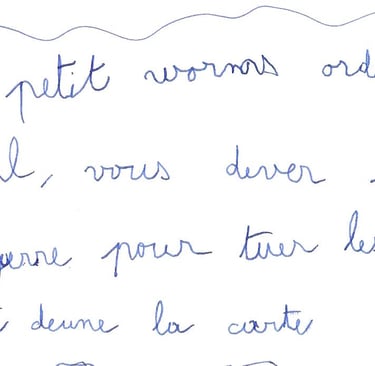 petit worms ord
l, vous dever
uerre pour tuer les
t deune la carte